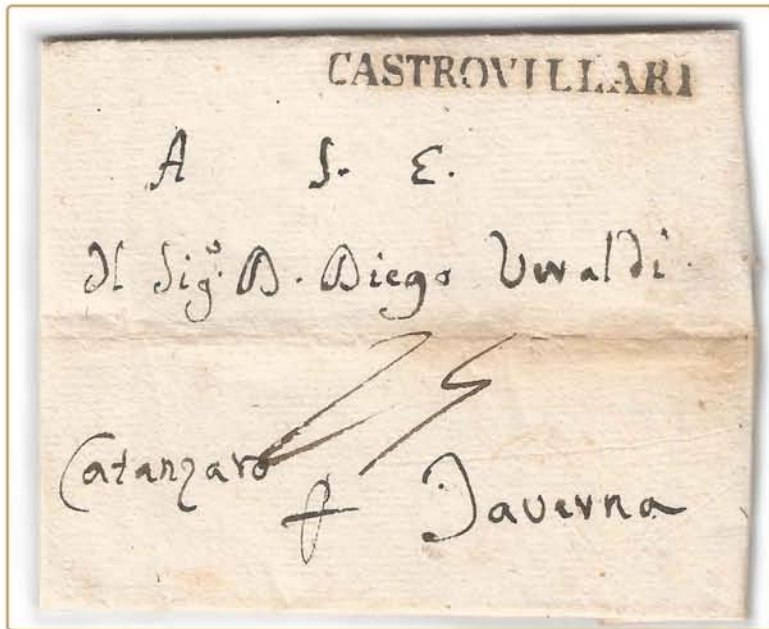 CASTROVILLARI
A S. E.
Il Sig.º D. Diego
Catanzaro
Taverna